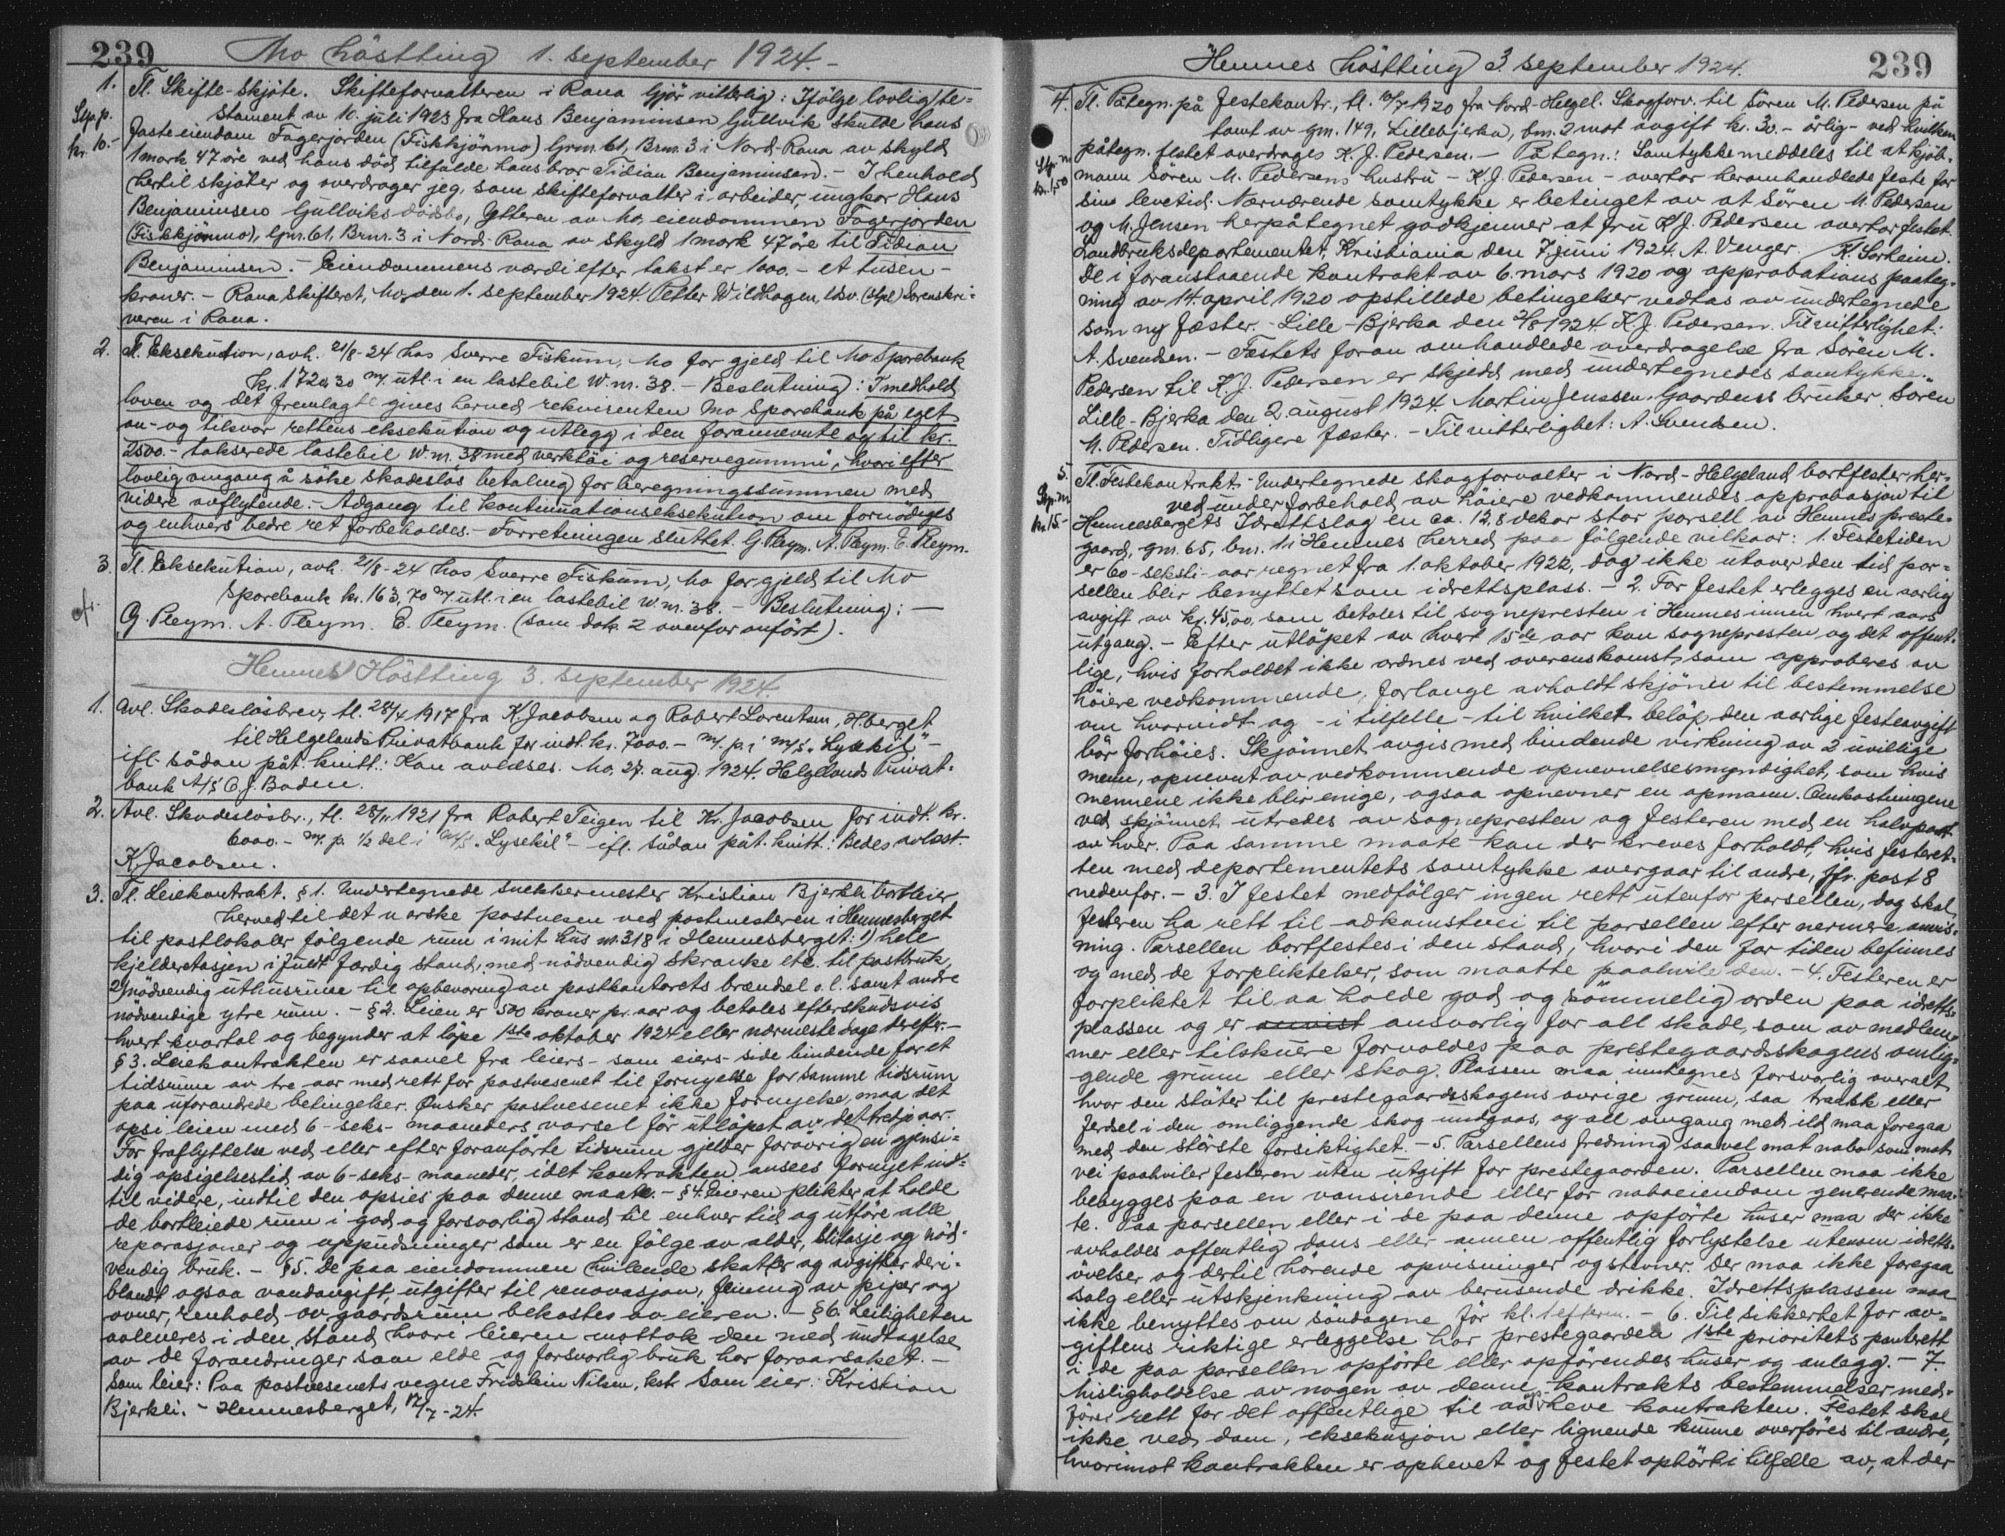 239 Mo hösтting 1. september 1924.-
1. Tl. Skifte-skjöte. Skifteforvalteren i Rana Gjör vitterlig: Ifölge lovlig te-
Stp. p. stament av 10. juli 1923 fra Hans Benjaminsen Gullvik skulde hans
kr. 10.- faste eiendom Fagerjorden (Fiskkjönmo) Grm. 61, Brnr. 3 i Nord-Rana av skyld
1 mark 47 öre ved hans död tilfalde hans bror Tidian Benjaminsen. - I henhold
hertil skjöter og overdrager jeg, som skifteforvalter i arbeider, ungkar Hans
Benjaminsen Gullviks dödsbo, Ytteren av Mo, eiendommen Fagerjorden
(Fiskkjönmo), Gnr. 61, Brnr. 3 i Nord-Rana av skyld 1 mark 47 öre til Tidian
Benjaminsen. - Eiendommens værdi efter takst er 1000.- et tusen-
kroner. - Rana Skifteret, Mo, den 1. september 1924. Petter Wildhagen, edsv. (stpl.) Sorenskri-
veren i Rana.
2. Tl. Eksekution, avh. 21/8-24 hos Sverre Fiskum, Mo for gjeld til Mo Sparebank
kr. 1720,30 m/ utl. i en lastebil W. nr. 38. - Beslutning: I medhold
loven og det fremlagte gives herved rekvirenten Mo Sparebank på eget
an- og tilsvar rettens eksekution og utlegg i den forannevnte og til kr.
2500.- takserede lastebil W. nr. 38 med verktöi og reservegummi, hvori efter
lovlig omgang å söke skadeslös betaling for beregningssummen med
videre avflytende. - Adgang til kontinuationseksekution om fornödiges
og enhvers bedre ret forbeholdes. - Forretningen sluttet. G. Pleym. A. Pleym. E. Pleym.
3. Tl. Eksekution, avh. 21/8-24 hos Sverre Fiskum, Mo for gjeld til Mo
Sparebank kr. 163,70 m/ utl. i en lastebil W. nr. 38. - Beslutning: -
G. Pleym. A. Pleym. E. Pleym. (som dok. 2 ovenfor anfört).
Hemnes Hösтting 3. september 1924.
1. Avl. Skadeslösbrev, tl. 28/4 1917 fra K. Jacobsen og Robert Lorentsen, H.berget
til Helgelands Privatbank for indt. kr. 7000.- m/ p. i m/s "Lysekil" -
ifl. sådan påt. kvitt.: Kan avlæses. Mo, 27. aug. 1924. Helgelands Privat-
bank A/S O. J. Boden.
2. Avl. Skadeslösbr., tl. 28/11 1921 fra Robert Teigen til Kr. Jacobsen for indt. kr.
6000.- m/ p. 1/2 del i m/s "Lysekil" - ifl. sådan påt. kvitt.: Bedes avlæst.
K. Jacobsen.
3. Tl. Leiekontrakt. § 1. Undertegnede snekkermester Kristian Bjerkli bortleier
herved til det norske postvesen ved postmesteren i Hemnesberget
til postlokaler fölgende rum i mit hus nr. 318 i Hemnesberget: 1) hele
kjelderetasjen i fuldt færdig stand, med nödvendig skranke etc. til postbruk,
2) nödvendig uthusrum til opbevaring av postkontorets brændsel o.l. samt andre
nödvendige ytre rum. - § 2. Leien er 500 kroner pr. aar og betales efterskudsvis
hvert kvartal og begynder at löpe 1ste oktober 1924 eller nærmeste dage derefter. -
§ 3. Leiekontrakten er saavel fra leiers- som eiers-side bindende for et
tidsrum av tre aar med rett for postvesenet til fornyelse for samme tidsrum
paa uforandrede betingelser. Önsker postvesenet ikke fornyelse, maa det
opsi leien med 6-seks- maaneders varsel för utlöpet av det tredje aar.
For fraflyttelse ved eller efter foranförte tidsrum gjelder forövrig en gjensi-
dig opsigelsestid av 6-seks- maaneder, idet kontrakten ansees fornyet ind-
til videre, indtil den opsies paa denne maate. - § 4. Eieren plikter at holde
de bortleiede rum i god og forsvarlig stand til enhver tid og utföre alle
reparasjoner og oppudsninger som er en fölge av alder, slitasje og nöd-
vendig bruk. - § 5. De paa eiendommen hvilende skatter og avgifter deri-
blandt ogsaa vandavgift, utgifter til renovasjon, feiing av piper og
ovner, renhold av gaardsrum bekostes av eieren. - § 6. Leiligheten
avleveres i den stand hvori leieren mottok den med undtagelse
av de forandringer som elde og forsvarlig bruk har foraarsaket. -
Som leier: Paa postvesenets vegne Fridslein Nilsen, kst. Som eier: Kristian
Bjerkli. - Hemnesberget, 12/7-24.
Hemnes hösтting 3. september 1924. 239
4. Tl. Påtegn. på festekontr., tl. 10/7 1920 fra Nord-Helgel. Skogforv. til Sören M. Pedersen på
tomt av gnr. 149, Lillebjerka, bnr. 2 mot avgift kr. 30.- årlig - ved hvilken
påtegn. festet overdrages K. J. Pedersen. - Påtegn.: Samtykke meddeles til at kjöb-
mann Sören M. Pedersens hustru - K. J. Pedersen - overtar heromhandlede feste for
sin levetid. Nærværende samtykke er betinget av at Sören M. Pedersen
og M. Jensen herpåtegnet godkjenner at fru K. J. Pedersen overtar festet.
Landbruksdepartementet, Kristiania den 7 juni 1924. A. Venger / K. Sorheim.
De i foranstaaende kontrakt av 6. mars 1920 og approbations paateg-
ning av 14. april 1920 opstillede betingelser vedtas av undertegnede
som ny fæster. - Lille-Bjerka den 2/8 1924 K. J. Pedersen. Til vitterlighet:
A. Svendsen. - Fæstets foran omhandlede overdragelse fra Sören M.
Pedersen til K. J. Pedersen er skjedd med undertegnedes samtykke.
Lille-Bjerka den 2. august 1924. Martin Jenssen. Gaardens bruker. Sören
M. Pedersen. Tidligere fæster. - Til vitterlighet: A. Svendsen.
5. Tl. Festekontrakt. Undertegnede skogforvalter i Nord-Helgeland bortfester her-
ved under forbehold av höiere vedkommendes approbasjon til
kr. 15.- Hemnesbergets Idrettslag en ca. 12,8 dekar stor parsell av Hemnes preste-
gaard, gnr. 65, bnr. 1 i Hemnes herred paa fölgende vilkaar: 1. Festetiden
er 60-seksti-aar regnet fra 1. oktober 1922, dog ikke utover den tid par-
sellen blir benyttet som idrettsplass. - 2. For festet erlegges en aarlig
avgift av kr. 45,00 som betales til sognepresten i Hemnes innen hvert aars
utgang. - Efter utlöpet av hvert 15de aar kan sognepresten og det offent-
lige, hvis forholdet ikke ordnes ved overenskomst som approberes av
höiere vedkommende, forlange avholdt skjönn til bestemmelse
om hvorvidt og - i tilfelle - til hvilket belöp den aarlige festeavgift
bör forhöies. Skjönnet avgis med bindende virkning av 2 uvillige
menn, opnevnt av vedkommende opnevnelsesmyndighet, som hvis
mennene ikke blir enige, ogsaa opnevner en opmann. Omkostningene
ved skjönnet utredes av sognepresten og festeren med en halvpart
av hver. Paa samme maate kan der kreves forholdt, hvis festeret-
ten med departementets samtykke overgaar til andre, jfr. post 8
nedenfor. - 3. I festet medfölger ingen rett utenfor parsellen, dog skal
festeren ha rett til adkomstvei til parsellen efter nermere anvis-
ning. Parsellen bortfestes i den stand, hvori den for tiden befinnes
og med de forpliktelser, som maatte paahvile den. - 4. Festeren er
forpliktet til aa holde god og sömmelig orden paa idretts-
plassen og er anvist ansvarlig for all skade, som av medlem-
mer eller tilskuere forvoldes paa prestegaardsskogens omlig-
gende grunn eller skog. Plassen maa inntegnes forsvarlig overalt
hvor den stöter til prestegaardsskogens övrige grunn, saa traakk eller
ferdsel i den omliggende skog undgaas, og all omgang med ild maa foregaa
med den störste forsiktighet. - 5. Parsellens fredning saavel mot nabo som mot
vei paahviler festeren uten utgift for prestegaarden. Parsellen maa ikke
bebygges paa en vansirende eller for naboeiendom generende maa-
te. Paa parsellen eller i de paa denne opförte huser maa der ikke
avholdes offentlig dans eller annen offentlig forlystelse utenom idretts-
övelser og dertil hörende opvisninger og stevner. Der maa ikke foregaa
salg eller utskjenkning av berusende drikke. Idrettsplassen maa
ikke benyttes om söndagene för kl. 1 efterm. - 6. Til sikkerhet for av-
giftens riktige erleggelse har prestegaarden 1ste prioritets panterett
i de paa parsellen opförte eller opförendes huser og anlegg. - 7.
Misligholdelse av nogen av denne kontrakts bestemmelser med-
förer rett for det offentlige til aa opheve kontrakten. Festet skal
ikke ved dom, eksekusjon eller lignende kunne overföres til andre,
hvorimot kontrakten er ophevet og festet ophört i tilfelle av, at der